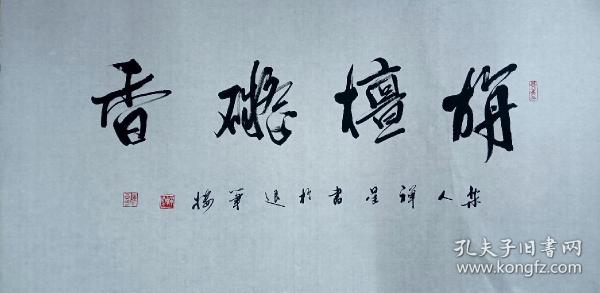 旃檀香
楚人禪星書於退筆樓
孔夫子旧书网
www.kongfz.com